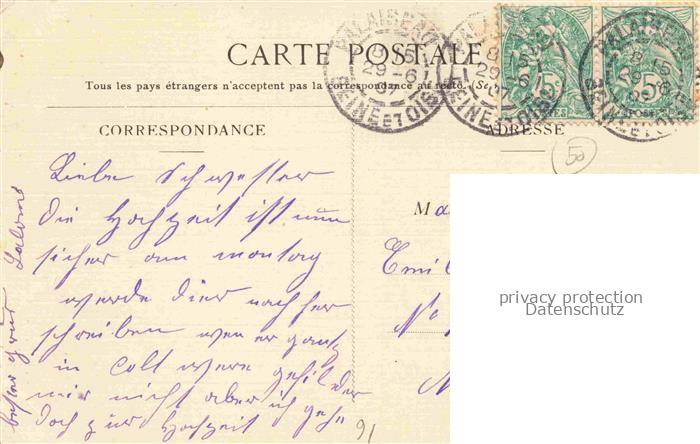 CARTE POSTALE
Tous les pays étrangers n'acceptent pas la correspondance au recto. (Se
CORRESPONDANCE
ADRESSE
PALAISEAU
8 15
29 -6
07
SEINE ET OISE
5
POSTES
50
Liebe Schwester
die Hochzeit ist nun
sicher am montag
werde dier nachher
schreiben wen er ganz
in Colt were gehil der
mir nicht aber ich geh
doch zur Hochzeit
bester grus Salome
91
Ma
Emil
N°
privacy protection
Datenschutz